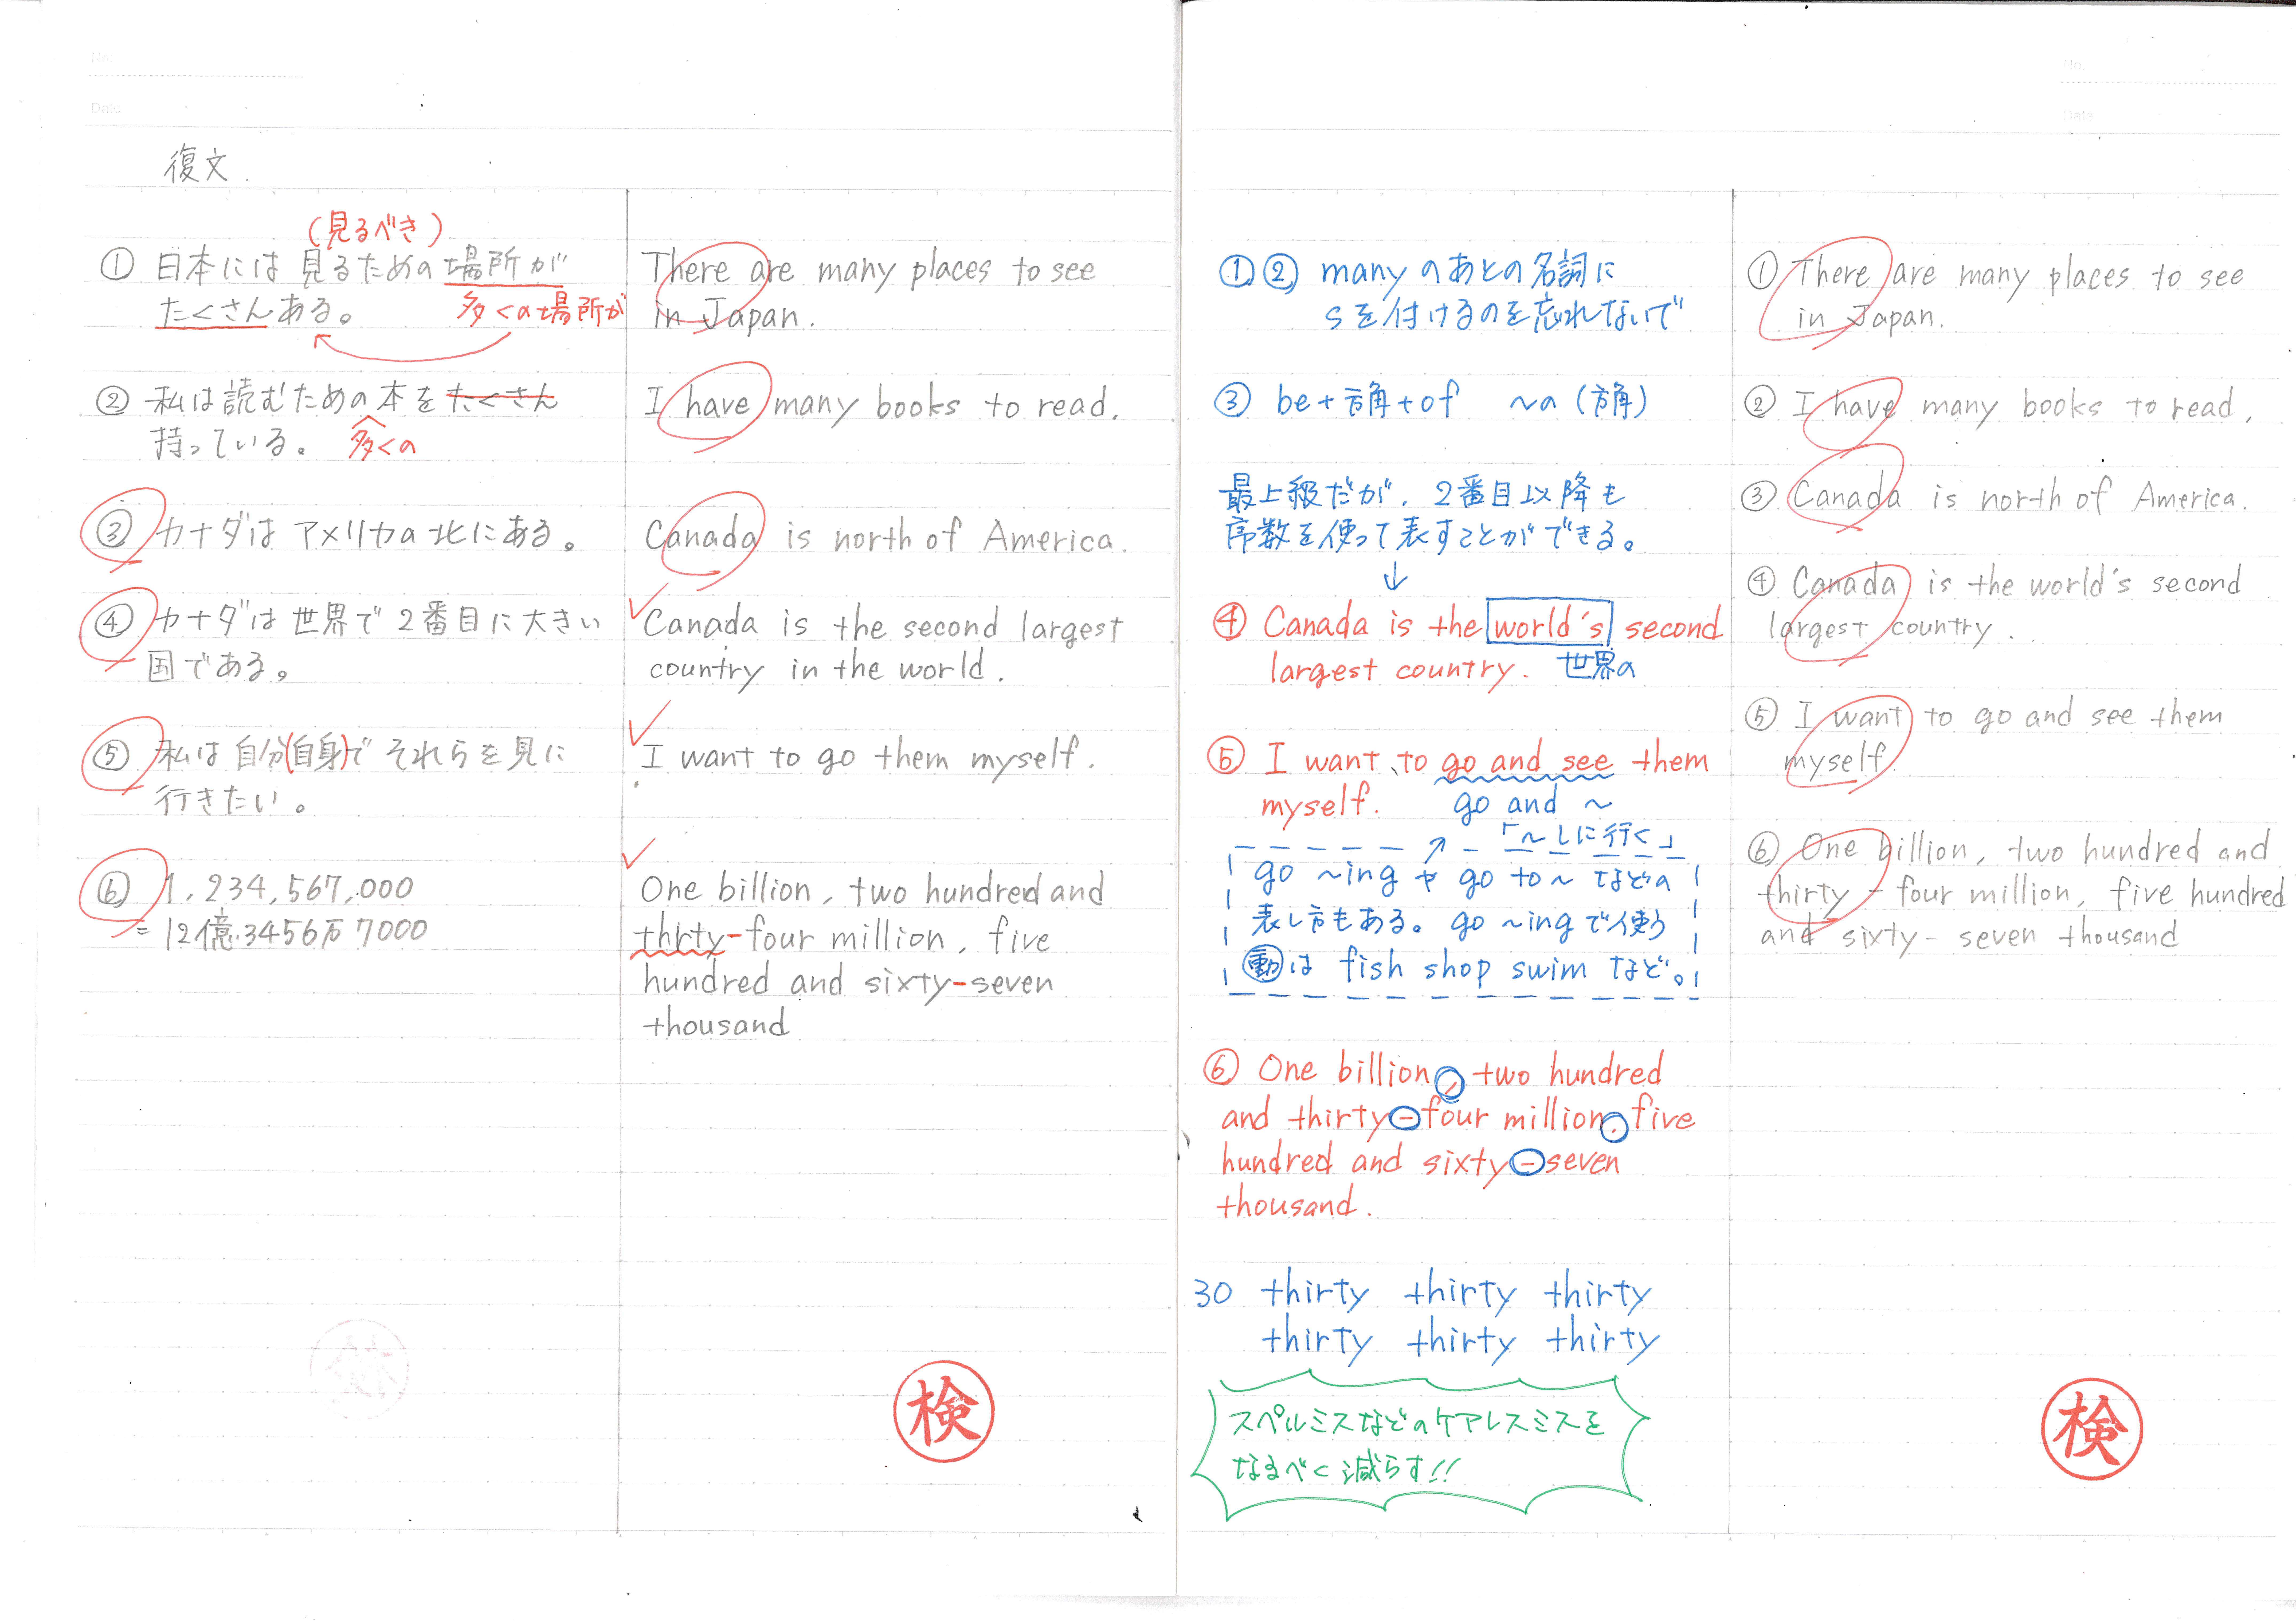 No.
Date
復文
(見るべき)
① 日本には 見るための 場所が
たくさんある。 多くの場所が
② 私は読むための本をたくさん
持っている。 多くの
③ カナダは アメリカの 北にある。
④ カナダは 世界で 2番目に大きい
国である。
⑤ 私は 自分(自身)で それらを 見に
行きたい。
⑥ 1,234,567,000
= 12億3456万7000
There are many places to see
in Japan.
I have many books to read.
Canada is north of America.
Canada is the second largest
country in the world.
I want to go them myself.
One billion, two hundred and
thrty-four million, five
hundred and sixty-seven
thousand
検
①② many のあとの名詞に
sを付けるのを忘れないで
③ be+方角+of 〜の(方角)
最上級だが、2番目以降も
序数を使って表すことができる。
↓
④ Canada is the world's second
largest country. 世界の
⑤ I want to go and see them
myself. go and 〜
「〜しに行く」
go 〜ing や go to 〜 などの
表し方もある。go 〜ing で使う
動は fish shop swim など。
⑥ One billion, two hundred
and thirty-four million, five
hundred and sixty-seven
thousand.
30 thirty thirty thirty
thirty thirty thirty
スペルミスなどのケアレスミスを
なるべく減らす!!
No.
Date
① There are many places to see
in Japan.
② I have many books to read.
③ Canada is north of America.
④ Canada is the world's second
largest country.
⑤ I want to go and see them
myself.
⑥ One billion, two hundred and
thirty-four million, five hundred
and sixty-seven thousand
検